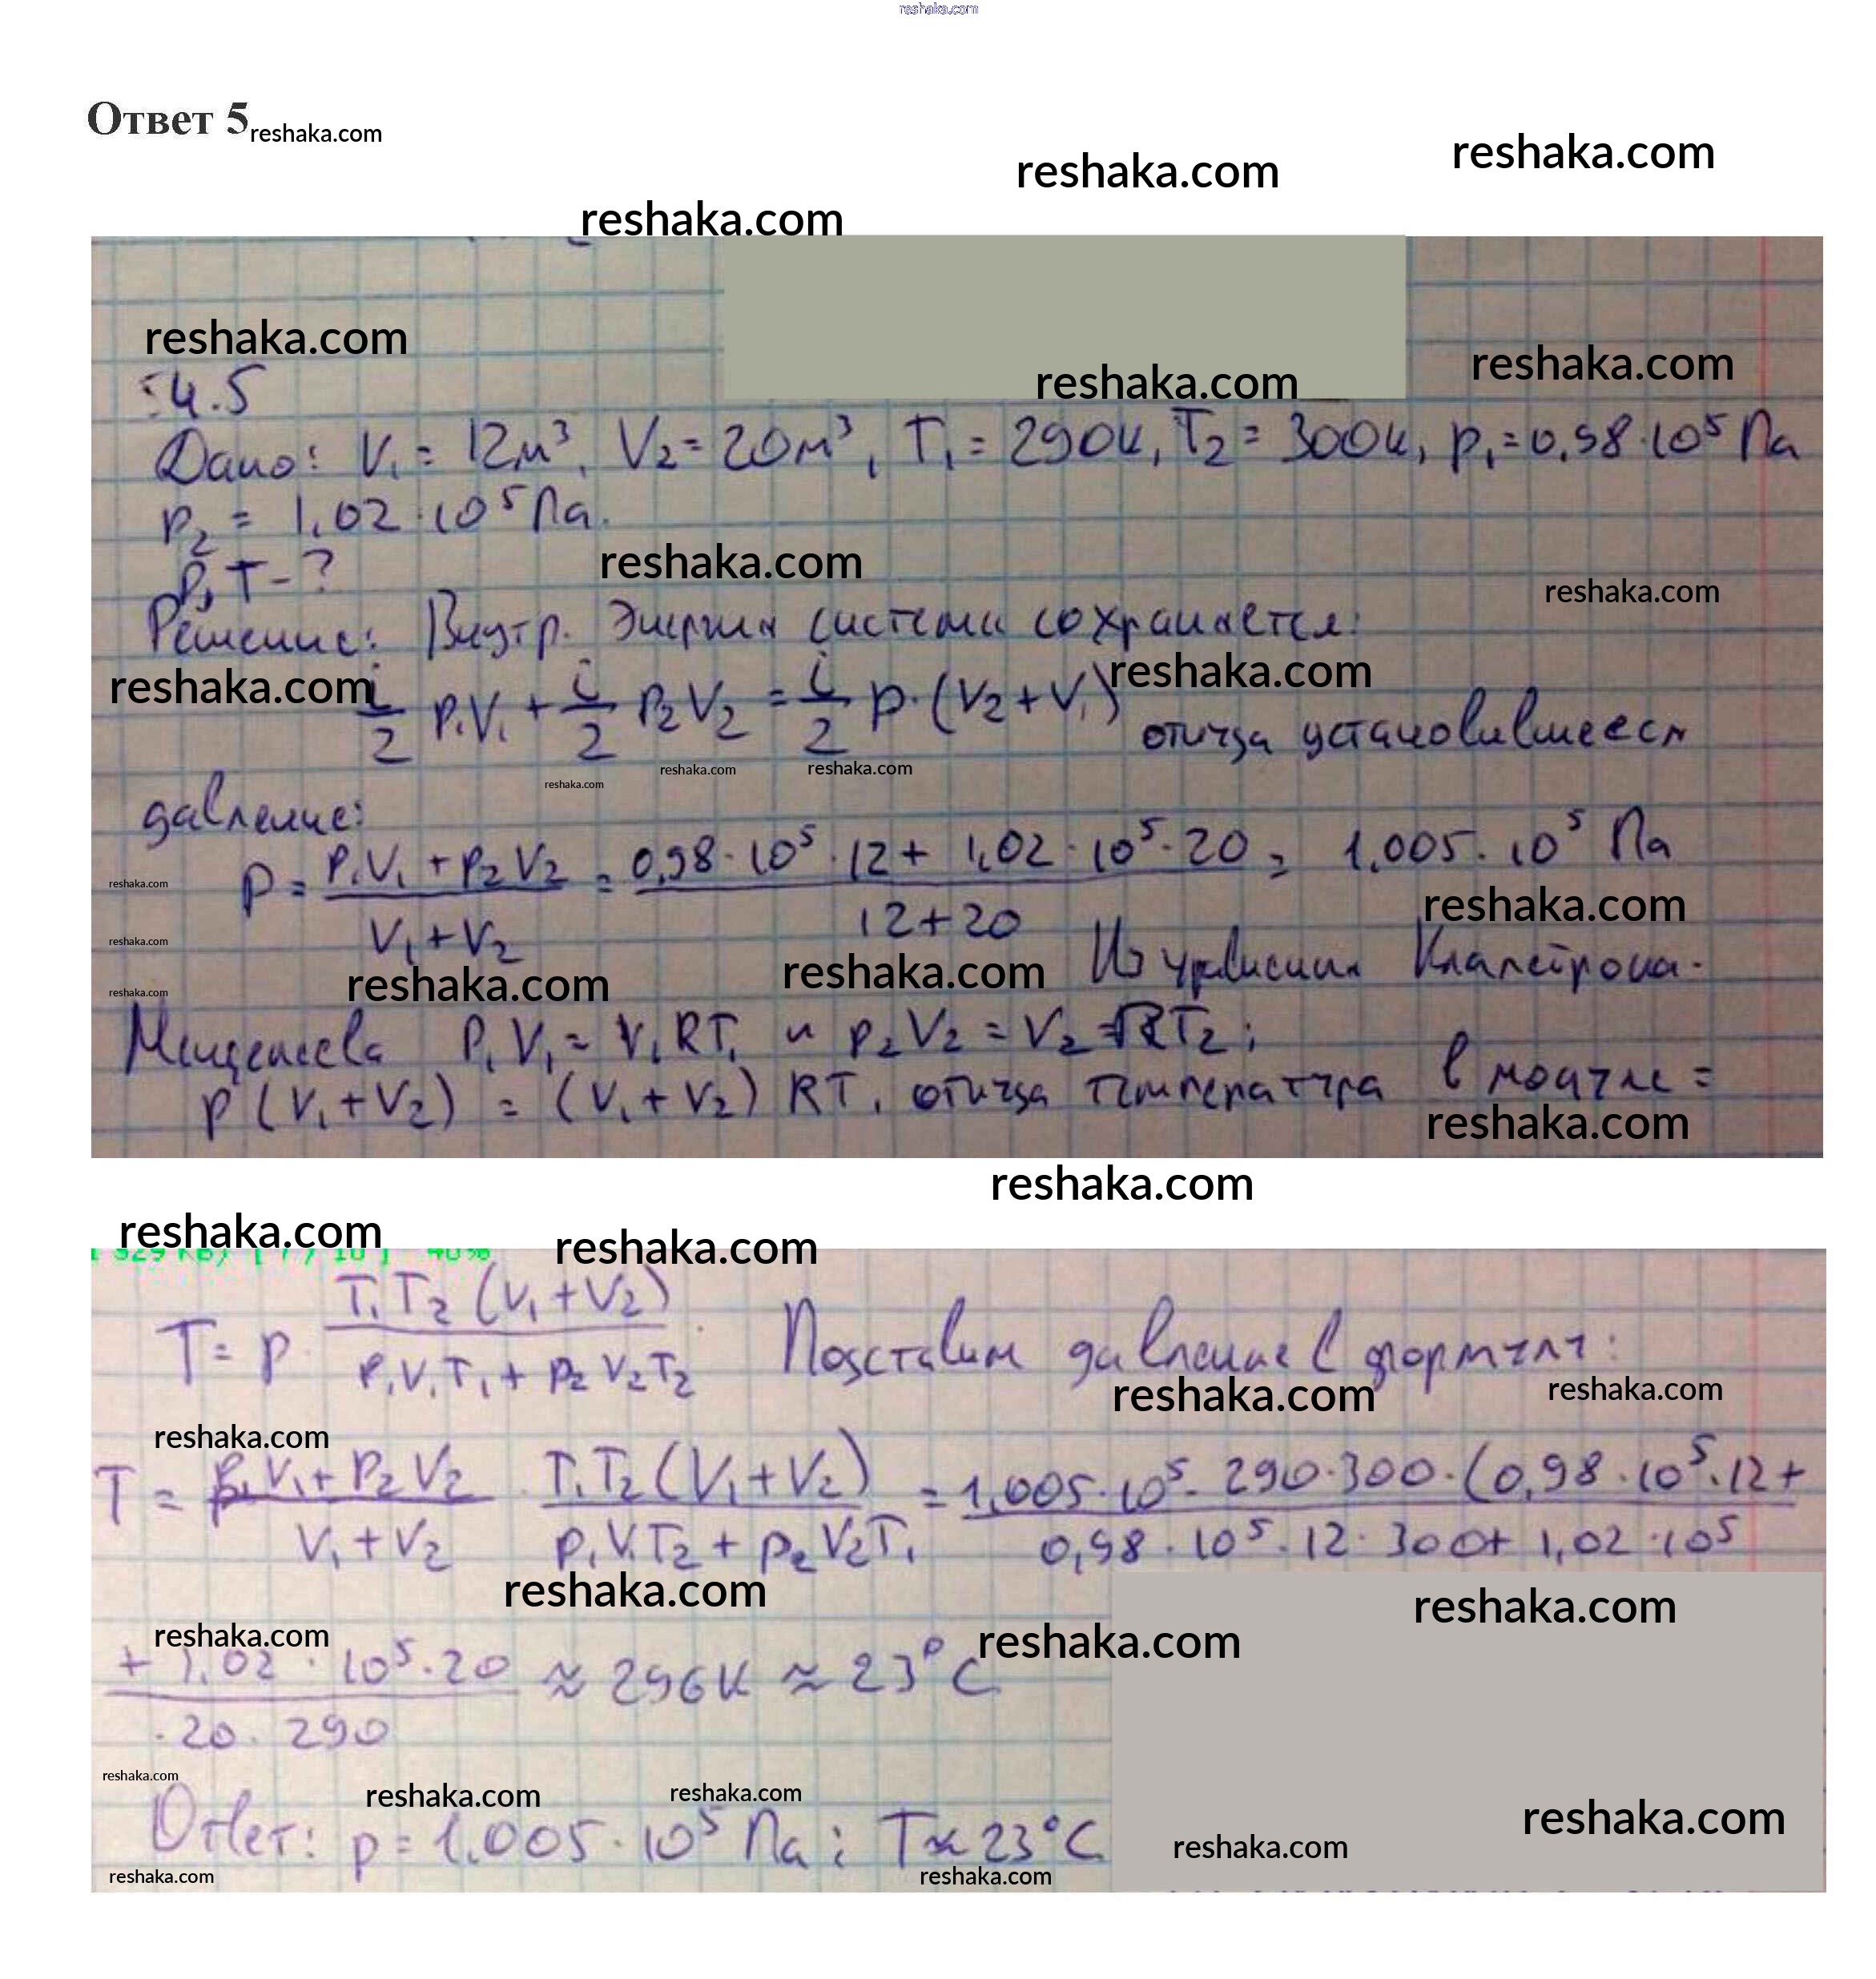 reshaka.com
Ответ 5 reshaka.com
reshaka.com
reshaka.com
reshaka.com
reshaka.com
reshaka.com
reshaka.com
4.5
Дано: V₁ = 12м³, V₂ = 20м³, T₁ = 290К, T₂ = 300К, p₁ = 0,98·10⁵ Па
p₂ = 1,02·10⁵ Па.
reshaka.com
p, T - ?
reshaka.com
Решение: Внутр. Энергия системы сохраняется:
reshaka.com
reshaka.com
i/2 p₁V₁ + i/2 p₂V₂ = i/2 p·(V₂+V₁) откуда установившееся
reshaka.com
reshaka.com
reshaka.com
давление:
p = (p₁V₁ + p₂V₂)/(V₁+V₂) = (0,98·10⁵·12 + 1,02·10⁵·20)/(12+20) = 1,005·10⁵ Па
reshaka.com
reshaka.com
reshaka.com
Из уравнения Клапейрона-
reshaka.com
reshaka.com
reshaka.com
Менделеева p₁V₁ = ν₁RT₁ и p₂V₂ = ν₂RT₂;
p(V₁+V₂) = (ν₁+ν₂)RT, откуда температура в =
reshaka.com
reshaka.com
reshaka.com
reshaka.com
T = p · T₁T₂(V₁+V₂)/(p₁V₁T₁ + p₂V₂T₂). Подставим давление в формулу:
reshaka.com
reshaka.com
reshaka.com
T = (p₁V₁+p₂V₂)/(V₁+V₂) · T₁T₂(V₁+V₂)/(p₁V₁T₂ + p₂V₂T₁) = 1,005·10⁵·290·300·(0,98·10⁵·12+ / 0,98·10⁵·12·300+1,02·10⁵
reshaka.com
reshaka.com
reshaka.com
reshaka.com
+1,02·10⁵·20 / ·20·290 ≈ 296К ≈ 23°C
reshaka.com
reshaka.com
reshaka.com
reshaka.com
Ответ: p = 1,005·10⁵ Па; T ≈ 23°C
reshaka.com
reshaka.com
reshaka.com